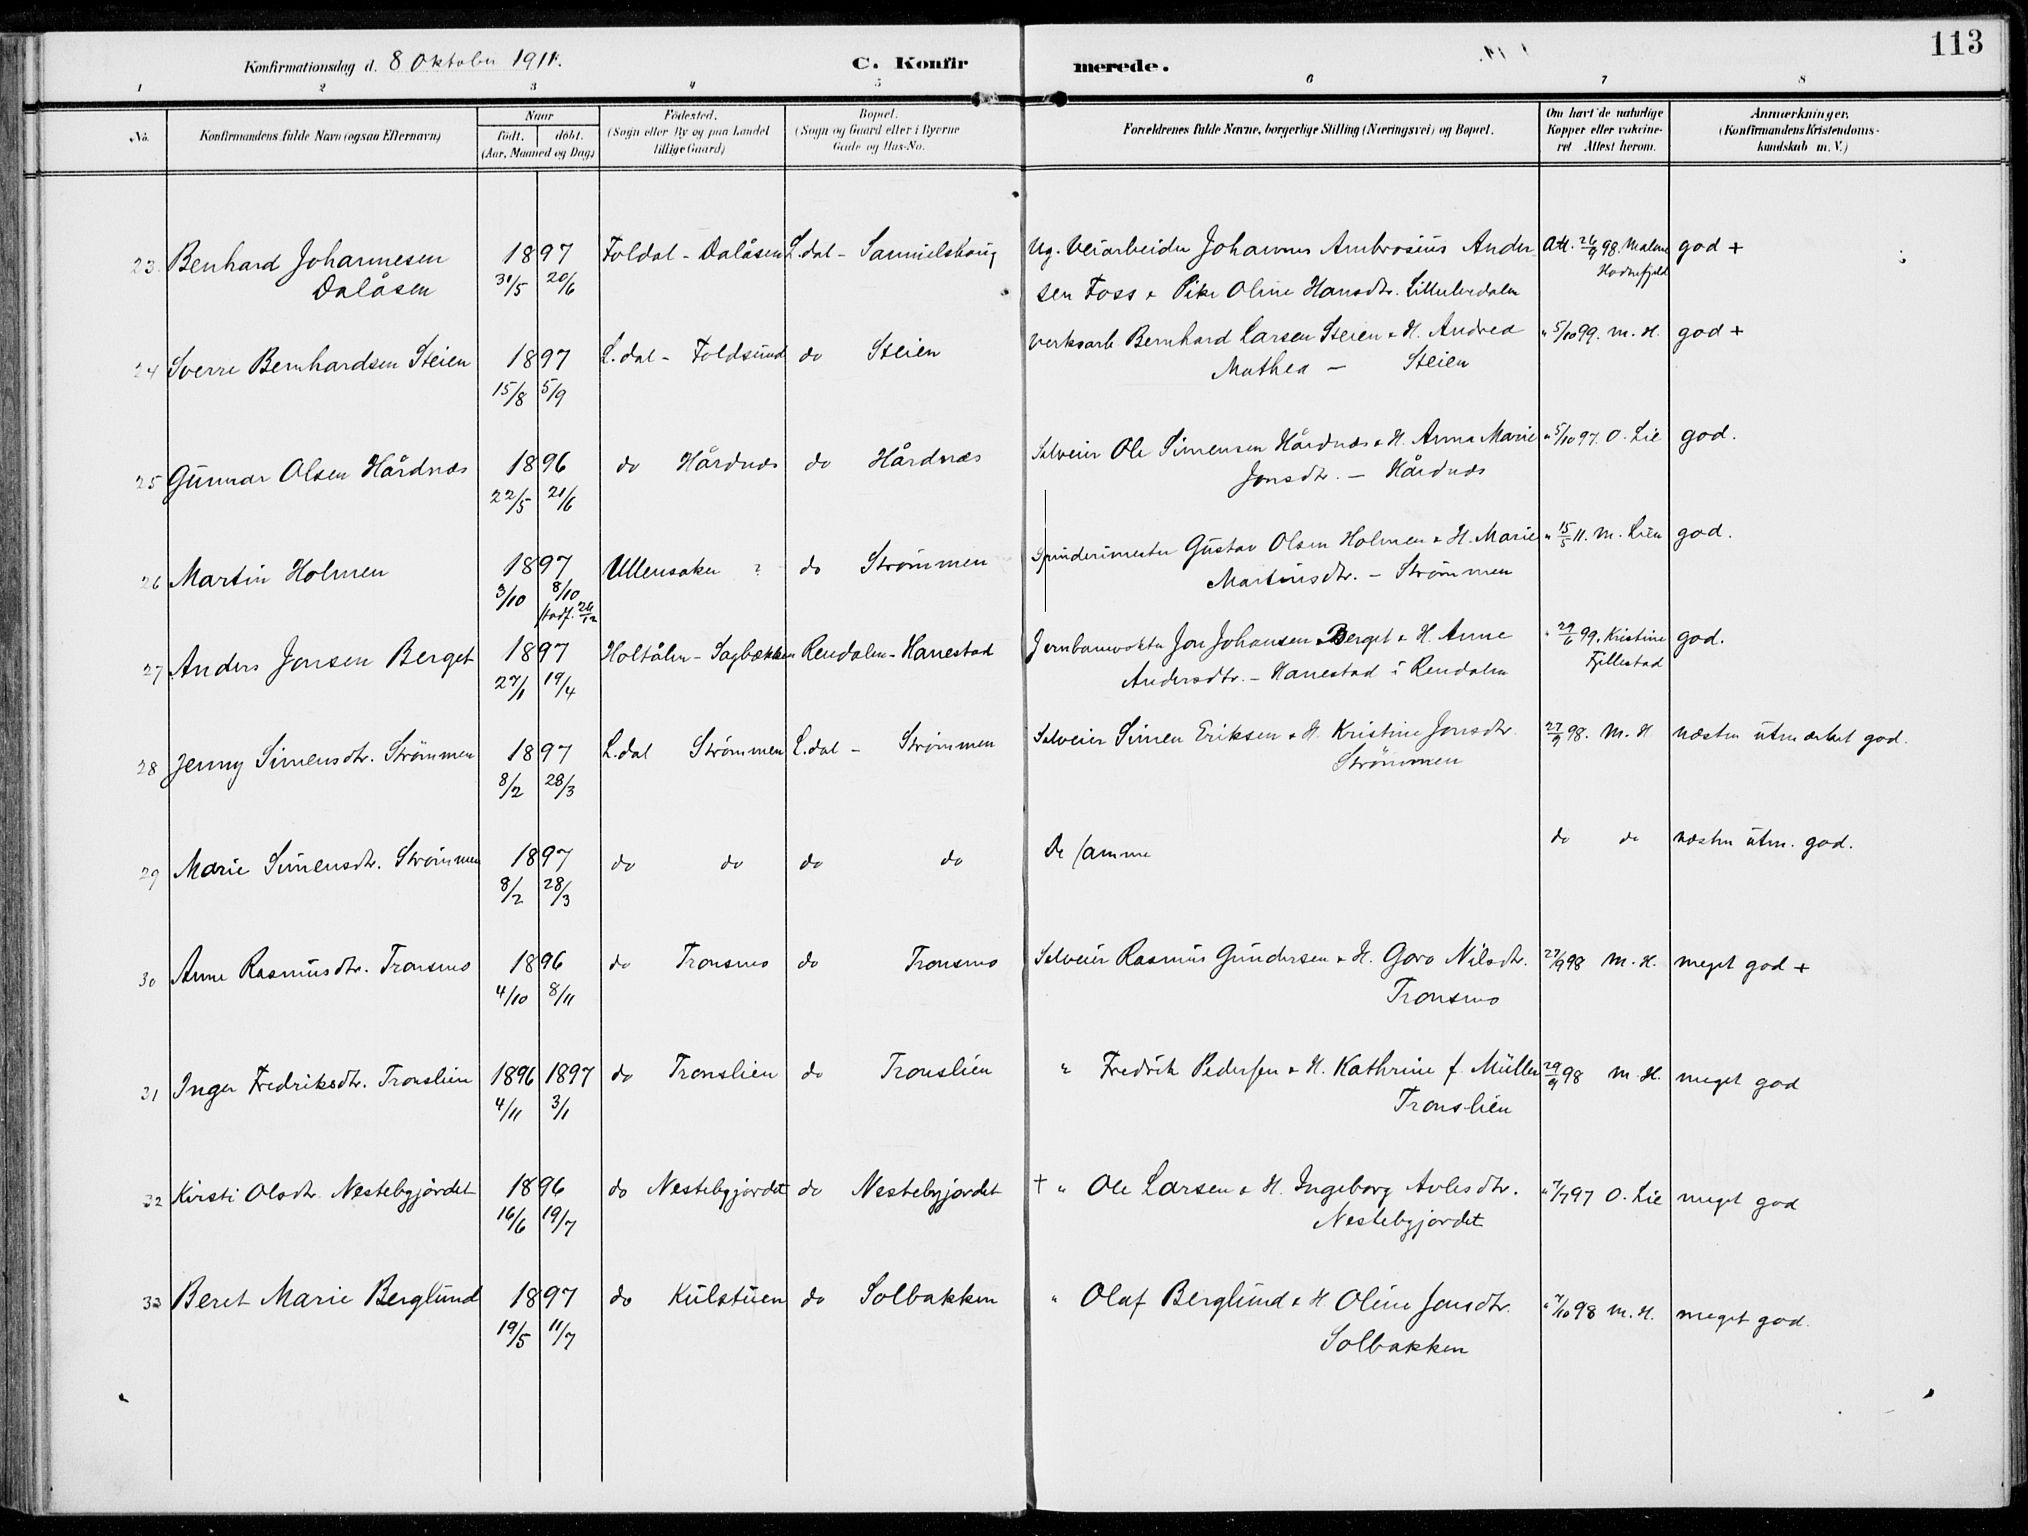 Konfirmationsdag d. 8 Oktober 1911.
C. Konfirmerede.
113
1 2 3 4 5 6 7 8
No.
Konfirmandens fulde Navn (ogsaa Efternavn)
Naar
født. døbt.
(Aar, Maaned og Dag)
Fødested.
(Sogn eller By og paa Landet
tillige Gaard)
Bopæl.
(Sogn og Gaard eller i Byerne
Gade og Hus-No.
Forældrenes fulde Navne, borgerlige Stilling (Næringsvei) og Bopæl.
Om havt de naturlige
Kopper eller vakcine-
ret Attest herom.
Anmærkninger.
(Konfirmandens Kristendoms-
kundskab m. V.)
23. Benhard Johannesen 1897 Foldal - Dalåsen L.dal - Samuelshaug Ug. Veiarbeider Johannes Ambrosius Ander- Att. 26/9 98. Malene god +
Dalåsen 31/5 20/6 sen Foss & Pike Oline Hansdtr. Lilleelvedalen Hodnefjeld
24 Sverre Bernhardsen Steien 1897 L.dal - Foldsund do Steien Verksarb. Bernhard Larsen Steien & H. Andrea " 5/10 99. M. H. god +
15/8 5/9 Mathea — Steien
25 Gunnar Olsen Hårdnæs 1896 do Hårdnæs do Hårdnæs Selveier Ole Simensen Hårdnæs & H. Anna Marie " 5/10 97. O. Lie god.
22/5 21/6 Jonsdtr. — Hårdnæs
26 Martin Holmen 1897 Ullensaker ? do Strømmen Spinderimester Gustav Olsen Holmen & H. Marie " 15/5 11. M. Lien god.
3/10 8/10 Martinsdtr. — Strømmen
stadf. 26/12
27 Anders Jonsen Berget 1897 Holtålen - Sagbækken Rendalen - Hanestad Jernbanevokter Jon Johansen Berget & H. Anne " 29/6 99. Kristine god.
27/1 19/4 Andersdtr. — Hanestad i Rendalen Fjellestad
28 Jenny Simensdtr. Strømmen 1897 L.dal Strømmen L.dal - Strømmen Selveier Simen Eriksen & H. Kristine Jonsdtr. 27/9 98. M. H næsten utmærket god.
8/2 28/3 Strømmen
29 Marie Simensdtr. Strømmen 1897 do do do do De samme do do næsten utm. god.
8/2 28/3
30 Anne Rasmusdtr. Tronsmo 1896 do Tronsmo do Tronsmo Selveier Rasmus Gundersen & H. Goro Nilsdtr. 27/9 98 M. H. meget god +
4/10 8/11 Tronsmo
31 Inger Fredriksdtr. Tronslien 1896 1897 do Tronslien do Tronslien " Fredrik Pedersen & H. Kathrine f. Müller 29/9 98 M. H. meget god
4/11 3/1 Tronslien
32 Kirsti Olsdtr. Nestebyjordet 1896 do Nestebyjordet do Nestebyjordet + " Ole Larsen & H. Ingeborg Avlesdtr. " 7/7 97 O. Lie meget god
16/6 19/7 Nestebyjordet
33 Beret Marie Berglund 1897 do Kulstuen do Solbakken " Olaf Berglund & H Oline Jonsdtr. " 7/10 98 M. H. meget god.
19/5 11/7 Solbakken